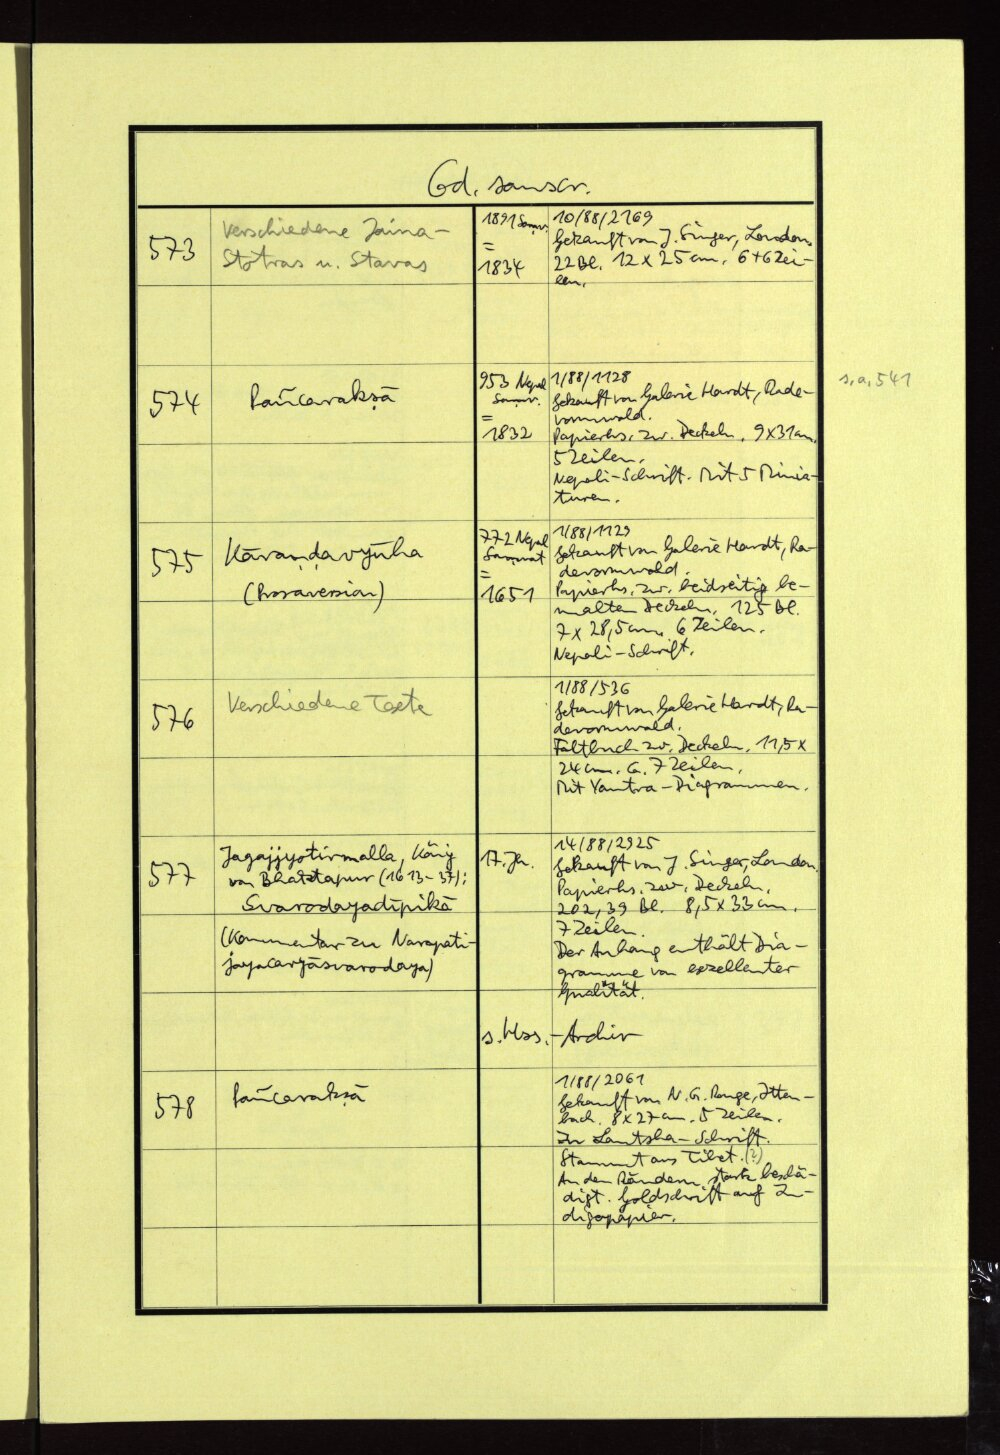 Cod. sanscr.
573
Verschiedene Jaina-
Stotras u. Stavas
1891 Samv.
=
1834
10/88/2769
Gekauft von J. Singer, London.
22 Bl. 12 x 25 cm. 6+6 Zei-
len.
574
Pañcarakṣā
953 Nepal
Samv.
=
1832
1/88/1128
Gekauft von Galerie Hardt, Rade-
vormwald.
Papierhs. zw. Deckeln. 9x31 cm.
5 Zeilen.
Nepali-Schrift. Mit 5 Minia-
turen.
s. a. 541
575
Kāraṇḍavyūha
(Prosaversion)
772 Nepal
Samvat
=
1651
1/88/1129
Gekauft von Galerie Hardt, Ra-
devormwald.
Papierhs. zw. beidseitig be-
malten Deckeln. 125 Bl.
7 x 28,5 cm. 6 Zeilen.
Nepali-Schrift.
576
Verschiedene Texte
1/88/536
Gekauft von Galerie Hardt, Ra-
devormwald.
Faltbuch zw. Deckeln. 11,5 x
24 cm. Ca. 7 Zeilen.
Mit Yantra-Diagrammen.
577
Jagajjyotirmalla, König
von Bhaktapur (1613-37):
Svarodayadīpikā
(Kommentar zu Narapati-
jayacaryāsvarodaya)
17. Jh.
14/88/2925
Gekauft von J. Singer, London.
Papierhs. zw. Deckeln.
202,39 Bl. 8,5 x 33 cm.
7 Zeilen.
Der Anhang enthält Dia-
gramme von exzellenter
Qualität.
s. Hss.-Archiv
578
Pañcarakṣā
1/88/2061
Gekauft von N. G. Ronge, Itten-
bach. 8 x 27 cm. 5 Zeilen.
In Lantsha-Schrift.
Stammt aus Tibet. (?)
An den Rändern stark beschä-
digt. Goldschrift auf In-
digopapier.